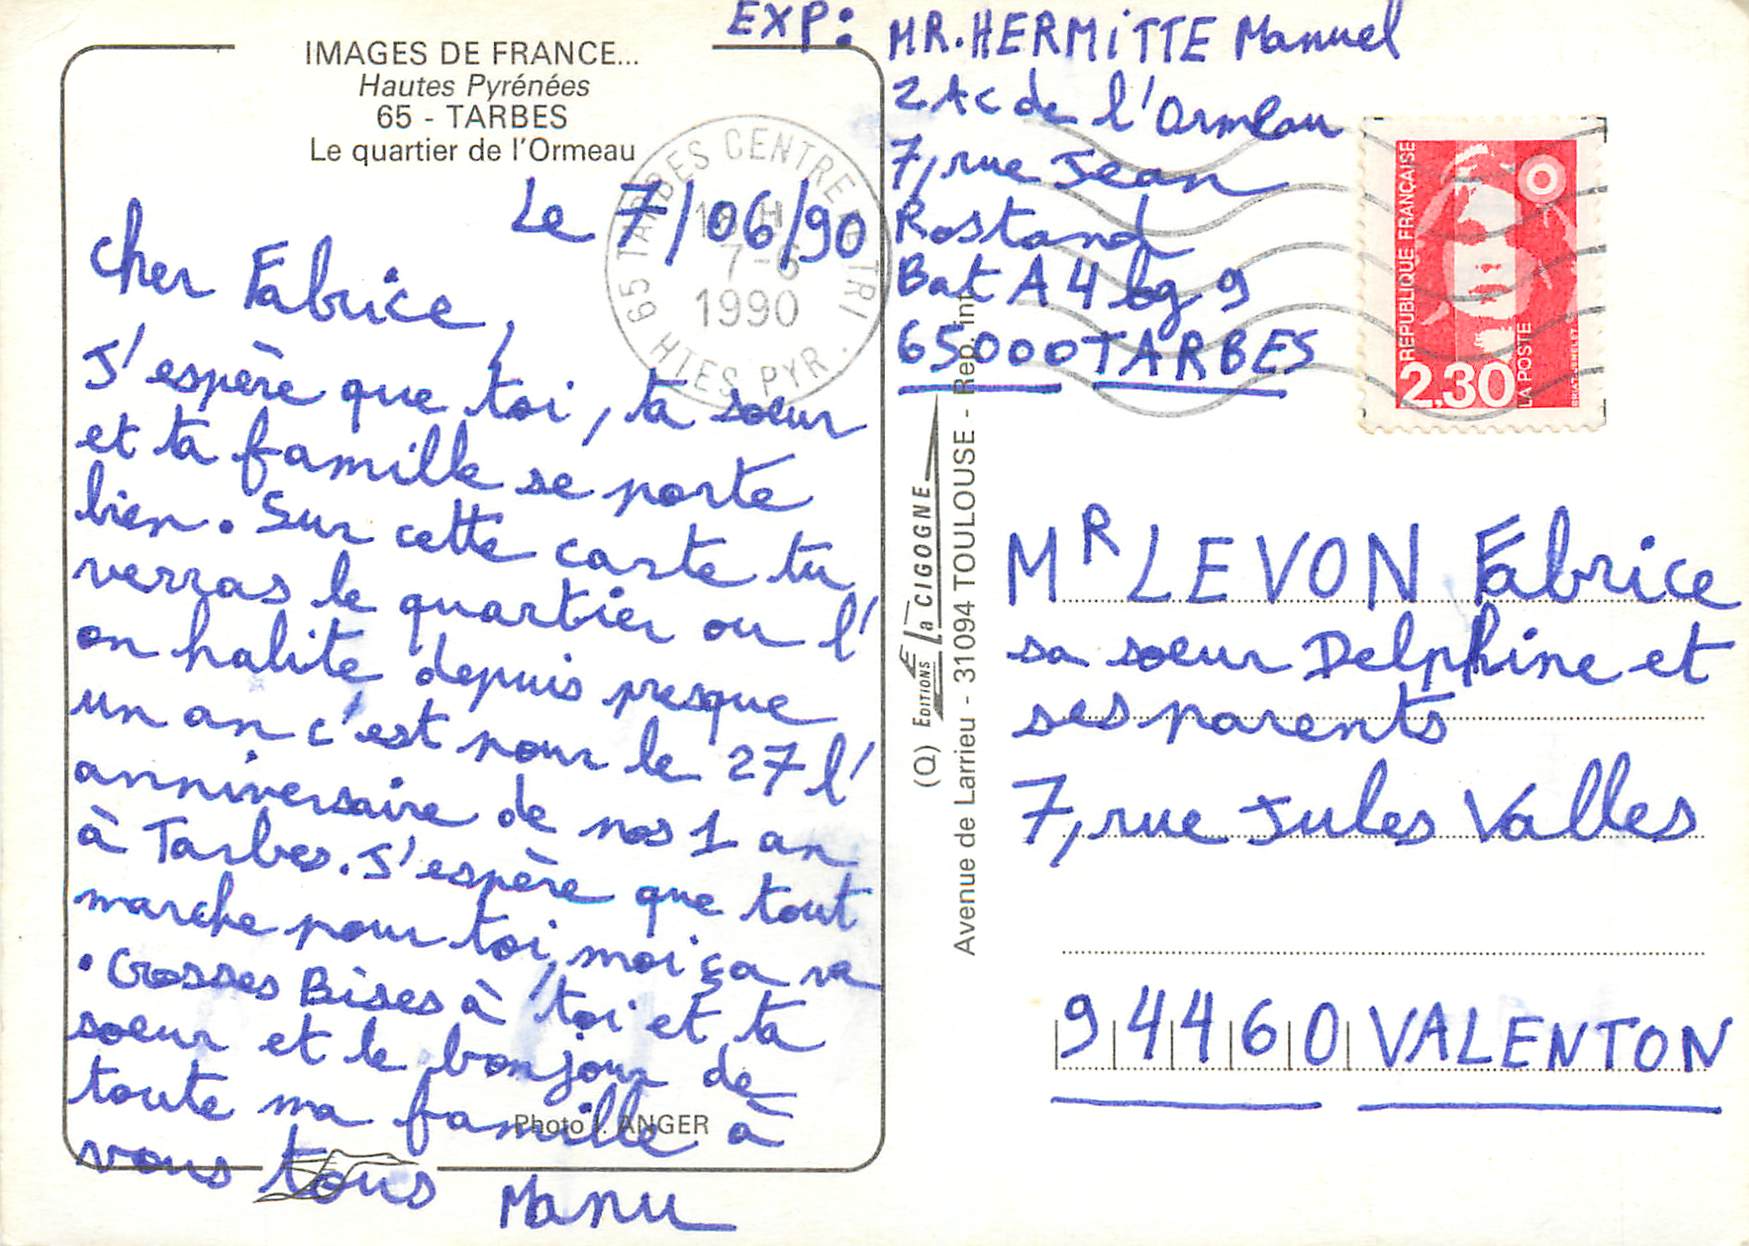 IMAGES DE FRANCE...
Hautes Pyrénées
65 - TARBES
Le quartier de l'Ormeau
Le 7/06/90
Cher Fabrice,
J'espère que toi, ta soeur
et ta famille se porte
bien. Sur cette carte tu
verras le quartier ou l'
on habite depuis presque
un an c'est pour le 27 l'
anniversaire de nos 1 an
à Tarbes. J'espère que tout
marche pour toi, moi ça va
. Grosses Bises à toi et ta
soeur et le bonjour de
toute ma famille à
vous tous Manu
Photo J. ANGER
65 TARBES CENTRE TRI
18 H
7-6
1990
HTES PYR.
EXP: MR. HERMITTE Manuel
2 Ac de l'Ormeau
7, rue Jean
Rostand
Bat A4 lg 9
65000 TARBES
REPUBLIQUE FRANÇAISE
2,30
LA POSTE
BRIAT-JUMELET
(Q) EDITIONS La CIGOGNE
Avenue de Larrieu - 31094 TOULOUSE - Rep. int.
MR LEVON Fabrice
sa soeur Delphine et
ses parents
7, rue Jules Valles
94460 VALENTON